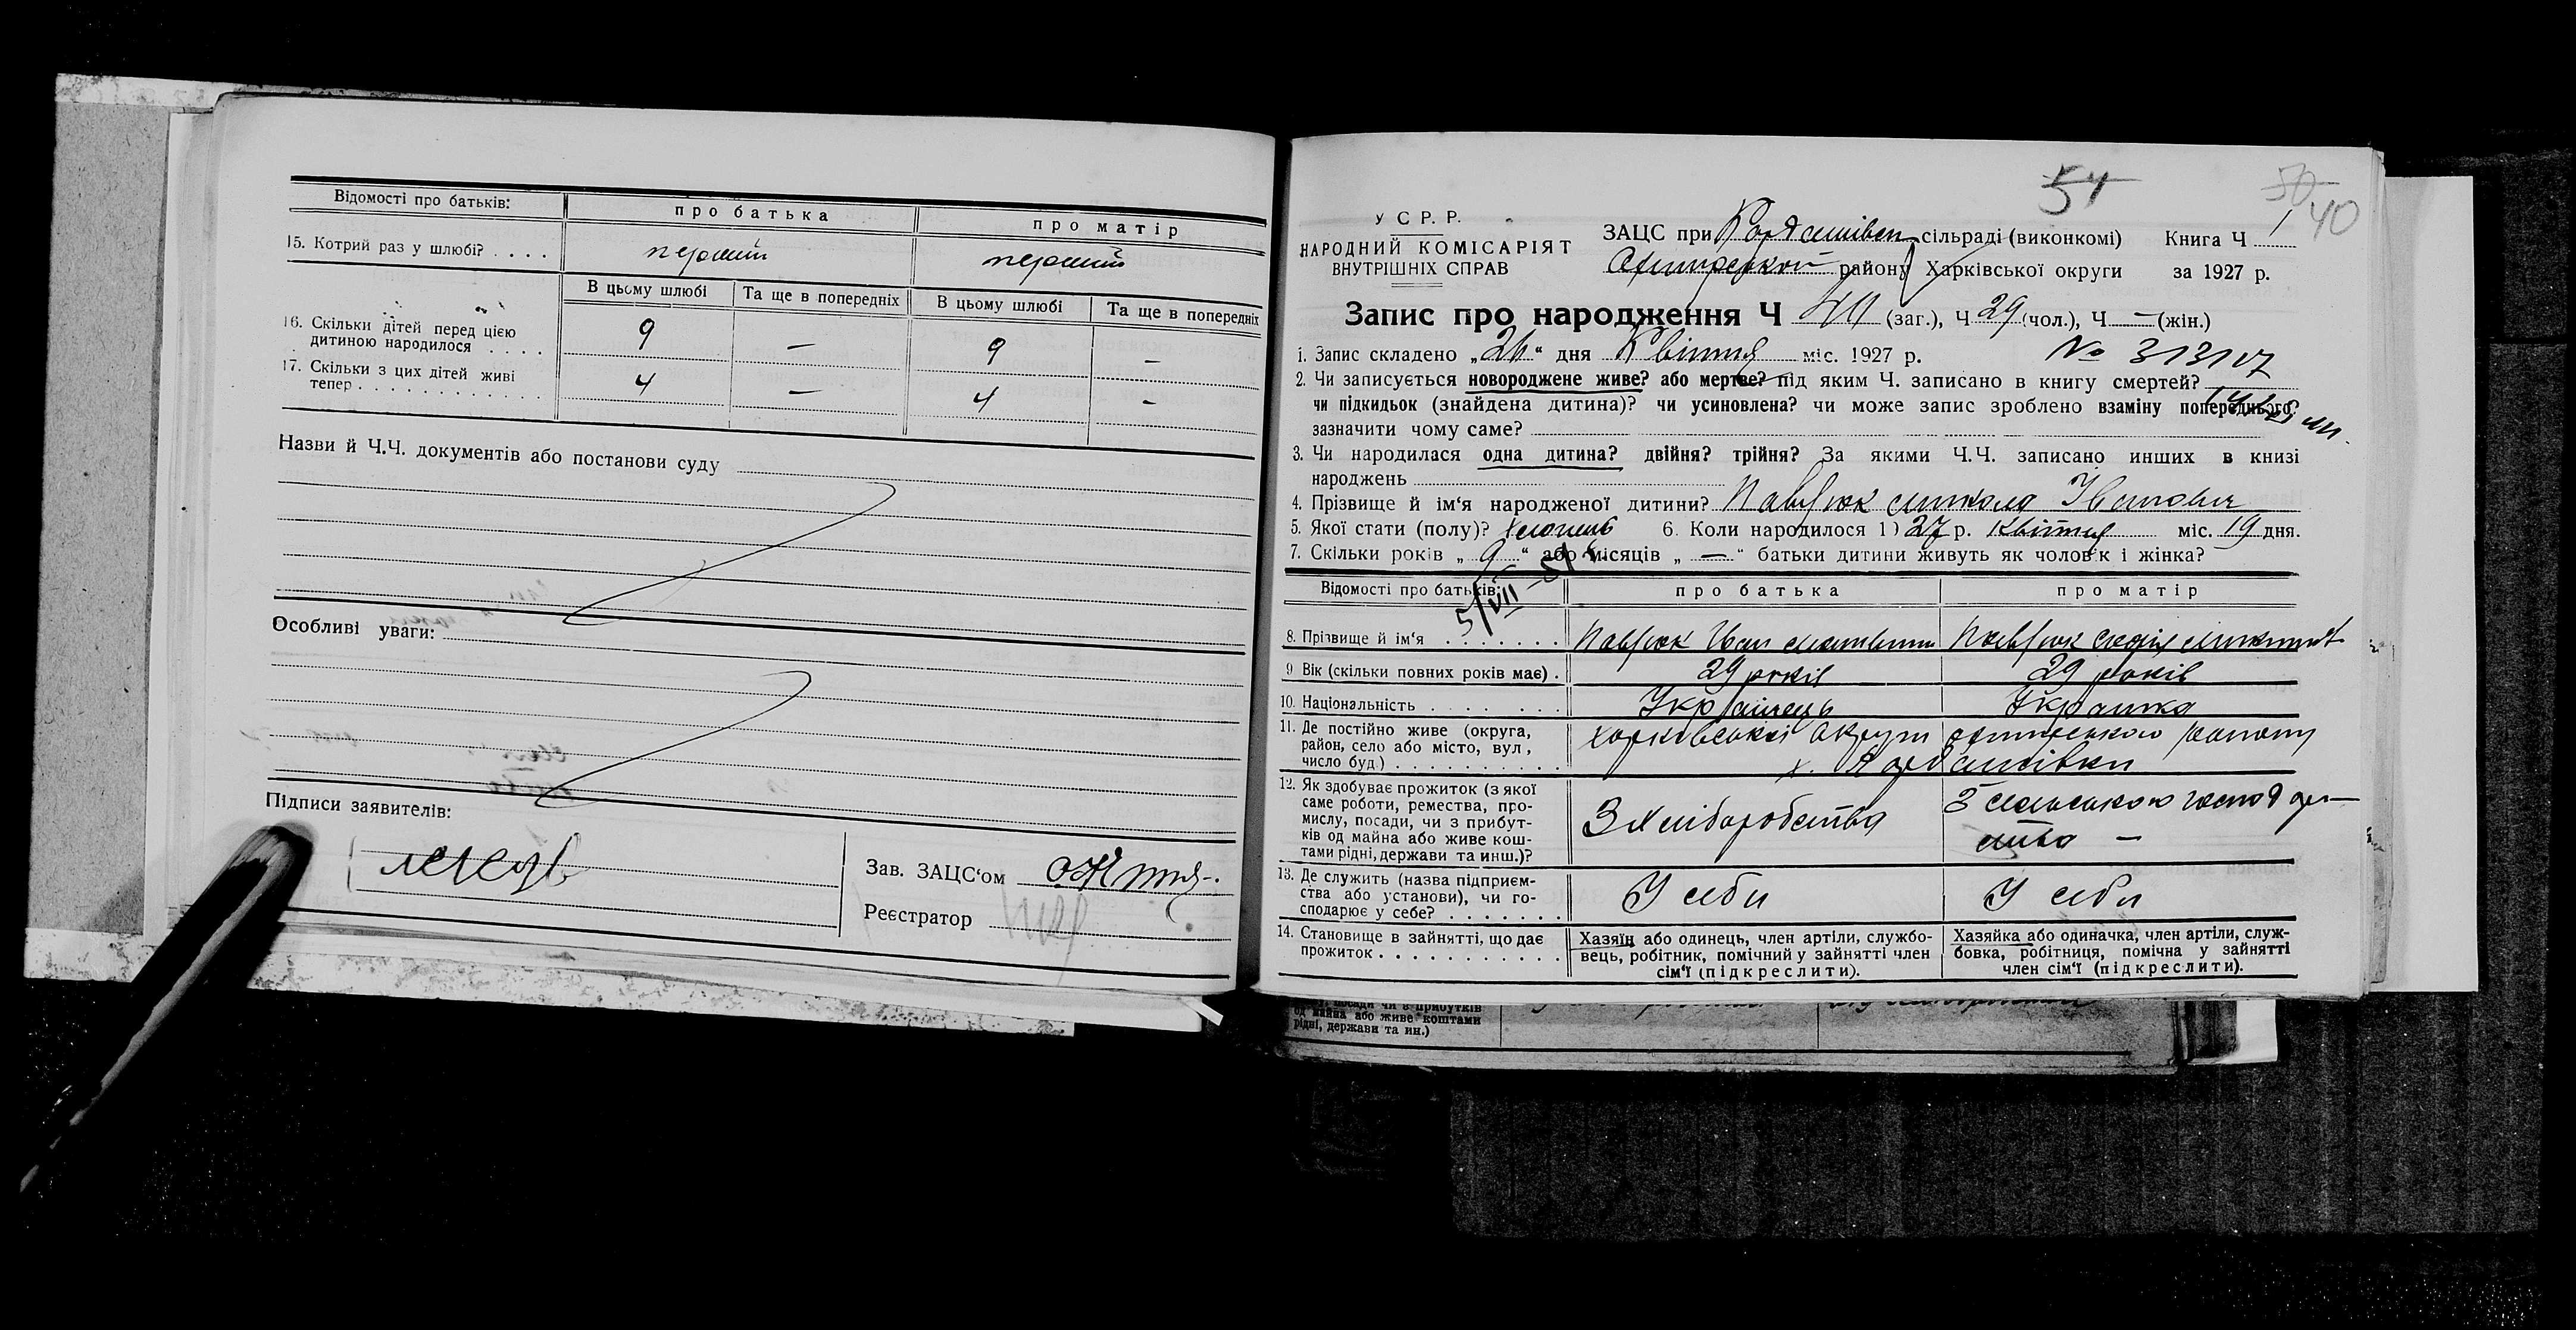 Відомості про батьків: про батька про матір
15. Котрий раз у шлюбі? . . . . перший перший
В цьому шлюбі Та ще в попередніх В цьому шлюбі Та ще в попередніх
16. Скільки дітей перед цією
дитиною народилося . . . . 9 — 9 —
17. Скільки з цих дітей живі
тепер . . . . . . . . . . . 4 — 4 —
Назви й Ч.Ч. документів або постанови суду
Особливі уваги:
Підписи заявителів:
Зав. ЗАЦС'ом
Реєстратор
54
50
40
У С Р. Р.
НАРОДНИЙ КОМІСАРІЯТ
ВНУТРІШНІХ СПРАВ
ЗАЦС при сільраді (виконкомі) Книга Ч 1
району Харківської округи за 1927 р.
Запис про народження Ч (заг.), Ч 29 (чол.), Ч — (жін.)
1. Запис складено „26“ дня Квітня міс. 1927 р. № 313107
2. Чи записується новороджене живе? або мертве? під яким Ч. записано в книгу смертей?
чи підкидьок (знайдена дитина)? чи усиновлена? чи може запис зроблено взаміну попереднього?
зазначити чому саме?
3. Чи народилася одна дитина? двійня? трійня? За якими Ч.Ч. записано инших в книзі
народжень
4. Прізвище й ім'я народженої дитини? Павлюк Микола Іванович
5. Якої стати (полу)? Хлопець 6. Коли народилося 1) 27 р. Квітня міс. 19 дня.
7. Скільки років „ 9 “ або місяців „ — “ батьки дитини живуть як чоловік і жінка?
5/VII-51
Відомості про батьків: про батька про матір
8. Прізвище й ім'я . . . . . . . Павлюк Іван Павлюк
9 Вік (скільки повних років має) . 29 років 29 років
10. Національність . . . . . . . Українець Українка
11. Де постійно живе (округа, Харківської Округи району
район, село або місто, вул,
число буд.) . . . . . . . . . . х.
12. Як здобуває прожиток (з якої
саме роботи, ремества, про-
мислу, посади, чи з прибут-
ків од майна або живе кош-
тами рідні, держави та инш.)? З хліборобства З сільського господар-
ства —
13. Де служить (назва підприєм-
ства або установи), чи го-
сподарює у себе? . . . . . . . У себи У себи
14. Становище в зайнятті, що дає
прожиток . . . . . . . . . . .
Хазяїн або одинець, член артіли, службо-
вець, робітник, помічний у зайнятті член
сім'ї (підкреслити).
Хазяйка або одиначка, член артіли, служ-
бовка, робітниця, помічна у зайнятті
член сім'ї (підкреслити).
посади чи з прибутків
од майна або живе коштами
рідні, держави та ин.)